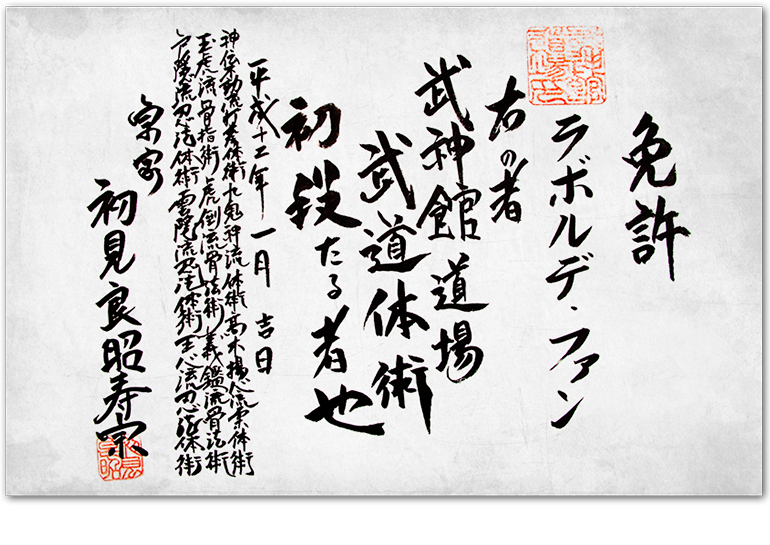 免許
ラボルデ・ファン
右の者
武神館道場
武道体術
初段たる者也
平成十二年一月吉日
神伝不動流打拳体術九鬼神流体術高木揚心流柔体術
玉虎流骨指術虎倒流骨法術義鑑流骨法術
戸隠流忍法体術雲隠流忍法体術玉心流忍法体術
宗家
初見良昭寿宗